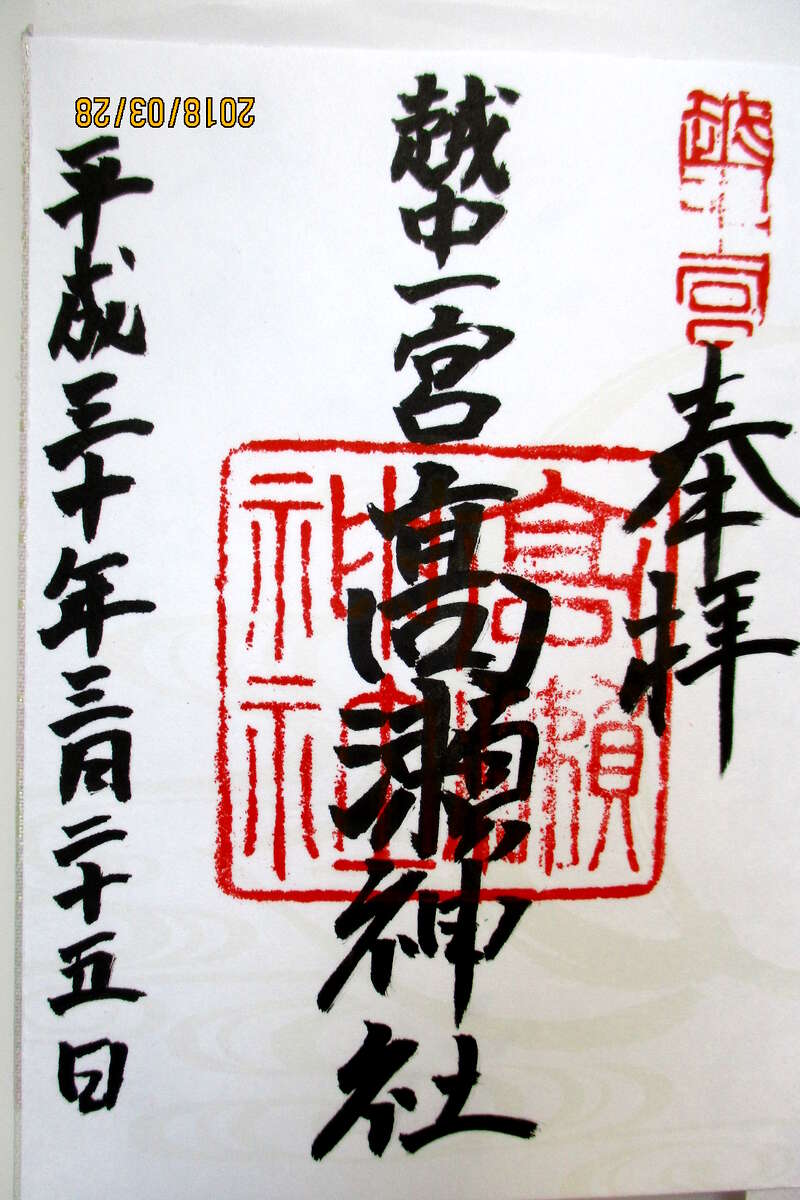 奉拝
越中一宮髙瀬神社
高瀬神社
平成三十年三月二十五日
2018/03/28